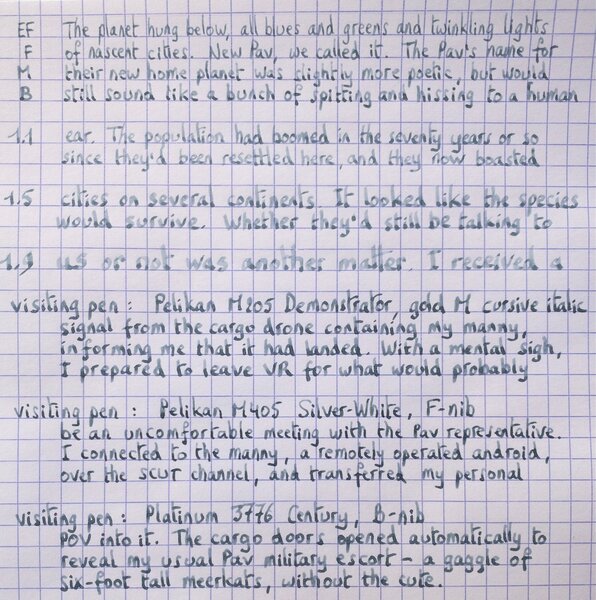 EF The planet hung below, all blues and greens and twinkling lights
F of nascent cities. New Pav, we called it. The Pav's name for
M their new home planet was slightly more poetic, but would
B still sound like a bunch of spitting and hissing to a human
1.1 ear. The population had boomed in the seventy years or so
since they'd been resettled here, and they now boasted
1.5 cities on several continents. It looked like the species
would survive. Whether they'd still be talking to
1.9 us or not was another matter. I received a
visiting pen : Pelikan M205 Demonstrator, gold M cursive italic
signal from the cargo drone containing my manny,
informing me that it had landed. With a mental sigh,
I prepared to leave VR for what would probably
visiting pen : Pelikan M405 Silver-White, F-nib
be an uncomfortable meeting with the Pav representative.
I connected to the manny, a remotely operated android,
over the SCUT channel, and transferred my personal
visiting pen : Platinum 3776 Century, B-nib
POV into it. The cargo doors opened automatically to
reveal my usual Pav military escort – a gaggle of
six-foot tall meerkats, without the cute.